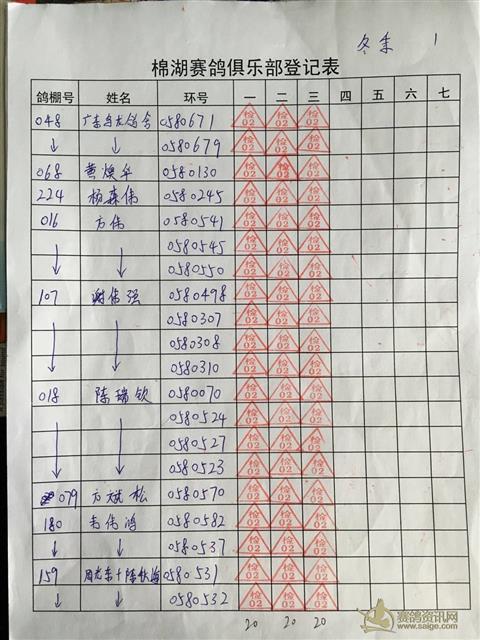 冬季 1
棉湖赛鸽俱乐部登记表
鸽棚号 姓名 环号 一 二 三 四 五 六 七
048 广东乌龙鸽舍 0580671 检02 检02 检02
↓ ↓ 0580679 检02 检02 检02
068 黄焕平 0580130 检02 检02 检02
224 杨森伟 0580245 检02 检02 检02
016 方伟 0580541 检02 检02 检02
0580545 检02 检02 检02
↓ ↓ 0580550 检02 检02 检02
107 谢伟强 0580498 检02 检02 检02
0580307 检02 检02 检02
0580308 检02 检02 检02
↓ ↓ 0580310 检02 检02 检02
018 陈瑞钦 0580070 检02 检02 检02
0580524 检02 检02 检02
0580527 检02 检02 检02
↓ ↓ 0580523 检02 检02 检02
079 方斌松 0580570 检02 检02 检02
180 伟鸿 0580582 检02 检02 检02
↓ ↓ 0580537 检02 检02 检02
159 0580531 检02 检02 检02
↓ ↓ 0580532 检02 检02 检02
20 20 20
赛鸽资讯网
www.saige.com